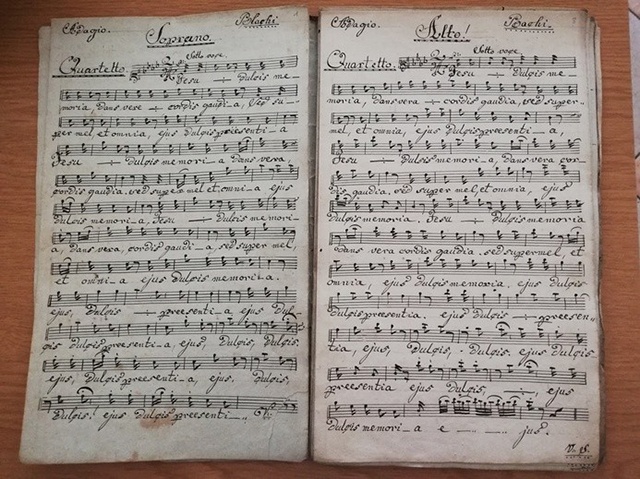 Adagio. Soprano. Blaghi.
Sotto voce.
Quartetto.
Jesu ÷ Dulgis me_
moria, Dans vere ÷ cordis gaudi_a, sed su_
per mel, et omnia, ejus Dulgis preesenti_a
Jesu ÷ Dulgis memoria Dans vera,
cordis gaudia, sed super mel, et omni_a ejus
Dulgis memori_a, Jesu ÷ Dulgis memori_
a, Dans vera, cordis gaudi_a, sed super mel,
et omni_a ejus Dulgis memoria.
ejus, Dulgis ÷ preesenti_a ejus Dul_
gis Dulgis preesenti_a, ejus, Dulgis, Dulgis.
ejus, Dulgis preesenti_a, ejus, Dulgis,
Dulgis. ejus Dulgis preesenti_
Adagio. Alto! Blaghi.
Sotto voce.
Quartetto.
Jesu ÷ Dulgis me_
moria, Dans vera ÷ cordis gaudia, sed super_
mel, et omnia, ejus Dulgis preesenti_a,
Jesu ÷ Dulgis memori_a, Dans vera cor
dis gaudia. sed super mel, et omnia, ejus
Dulgis memoria. Jesu ÷ Dulgis memoria
Dans vera cordis gaudia. sed super mel, et
omnia, ejus Dulgis memoria, ejus Dulgis
Dulgis preesentia. ejus Dulgis ÷ preesen_
tia, ejus, Dulgis, _ Dulgis. ejus Dulgis
preesentia ejus Dulgis, ÷, ejus
Dulgis memori_a e _ _ _ jus.